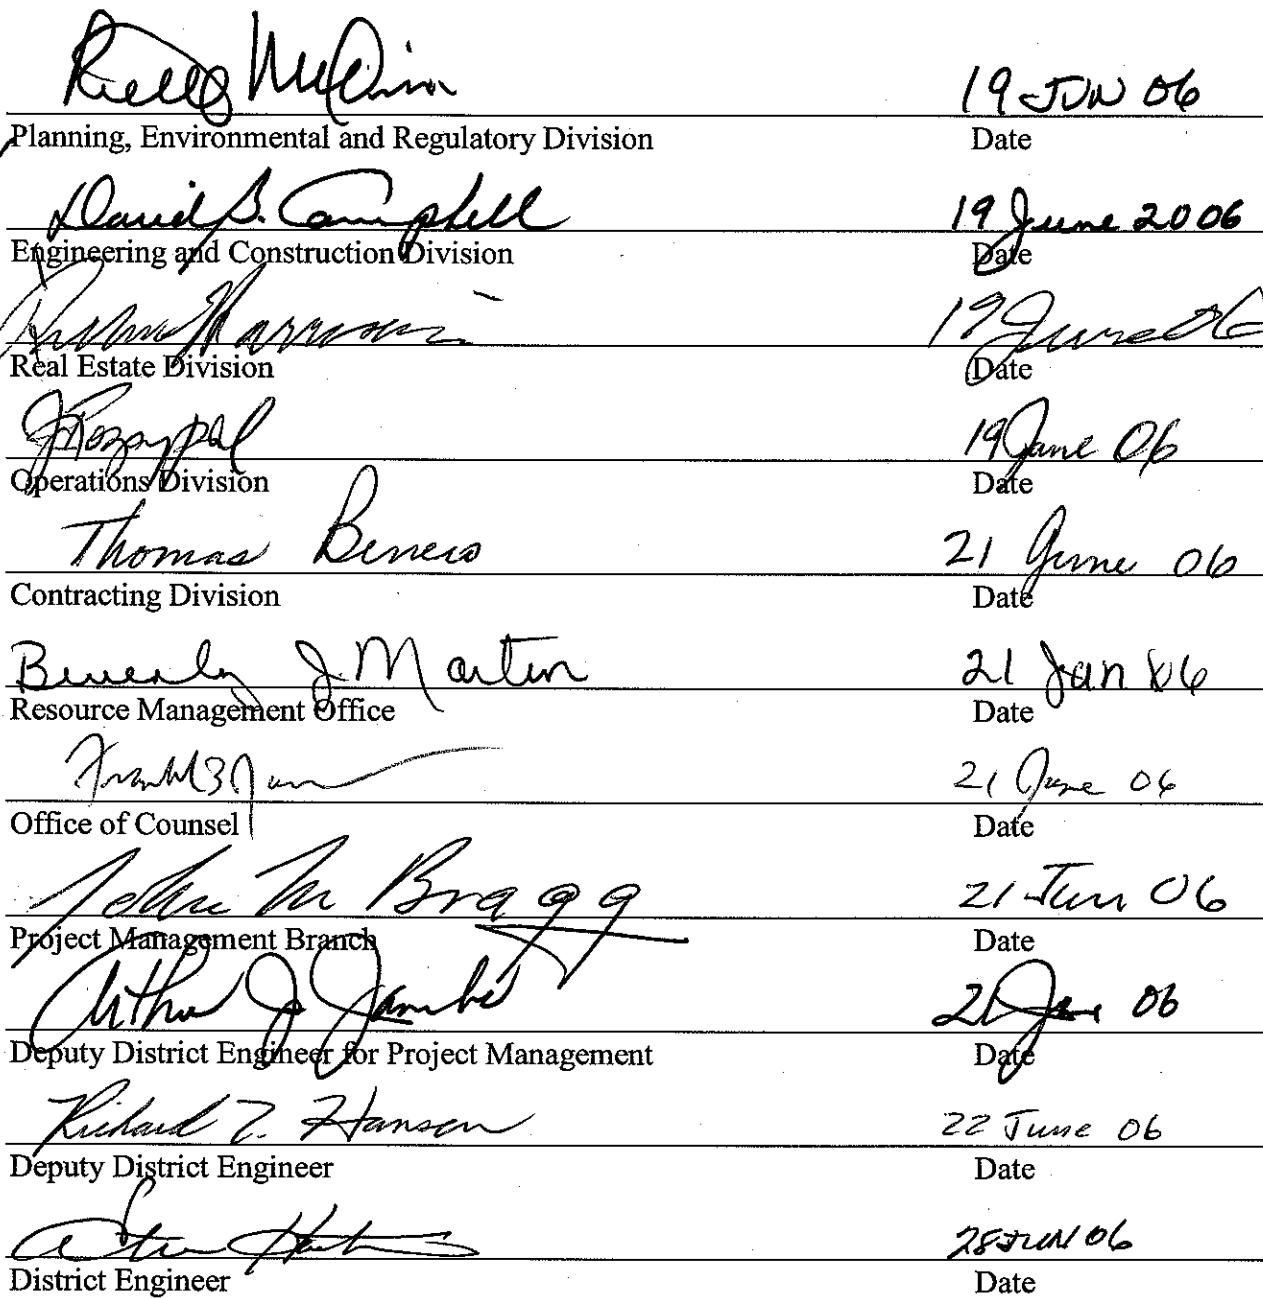 19 JUN 06
Planning, Environmental and Regulatory Division Date
David B. Campbell 19 June 2006
Engineering and Construction Division Date
Harrison 19 June 06
Real Estate Division Date
19 June 06
Operations Division Date
Thomas 21 June 06
Contracting Division Date
Beverly J. Martin 21 Jan 06
Resource Management Office Date
21 June 06
Office of Counsel Date
John M Bragg 21 Jun 06
Project Management Branch Date
Arthur J. 21 June 06
Deputy District Engineer for Project Management Date
Richard T. Hansen 22 June 06
Deputy District Engineer Date
28 JUN 06
District Engineer Date